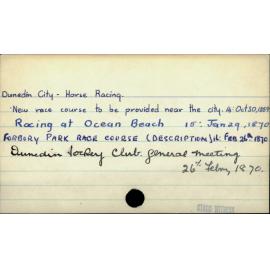 Dunedin City - Horse Racing.
New race course to be provided near the city. A: Oct 30, 1869
Racing at Ocean Beach 15: Jan 29, 1870
FORBURY PARK RACE COURSE (DESCRIPTION) 11: FEB 26th 1870
Dunedin Jockey Club. general meeting
26th Febry, 1870.